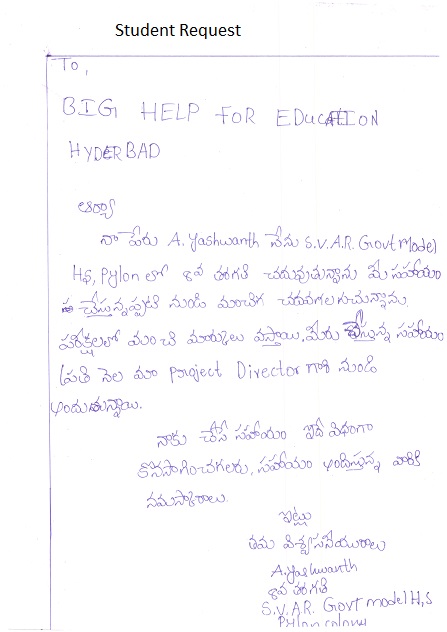 Student Request
To,
BIG HELP FOR EDUCATION
HYDERBAD
ఆర్యా
నా పేరు A. Yashwanth నేను S.V.A.R. Govt Model
HS, Pylon లో 8వ తరగతి చదువుతున్నాను మీ సహాయం
చేస్తున్నప్పటి నుండి మంచిగ చదువగలుగుచున్నాను.
పరీక్షలలో మంచి మార్కులు వస్తాయి. మీరు చేస్తున్న సహాయం
ప్రతి నెల మా Project Director గారి నుండి
అందుతున్నాయి.
నాకు చేసే సహాయం ఇదే విధంగా
కొనసాగించగలరు, సహాయం అందిస్తున్న వారికి
నమస్కారాలు.
ఇట్లు
తమ విశ్వసనీయురాలు
A. Yashwanth
8వ తరగతి
S.V.A.R. Govt model H,S
Pylon colony